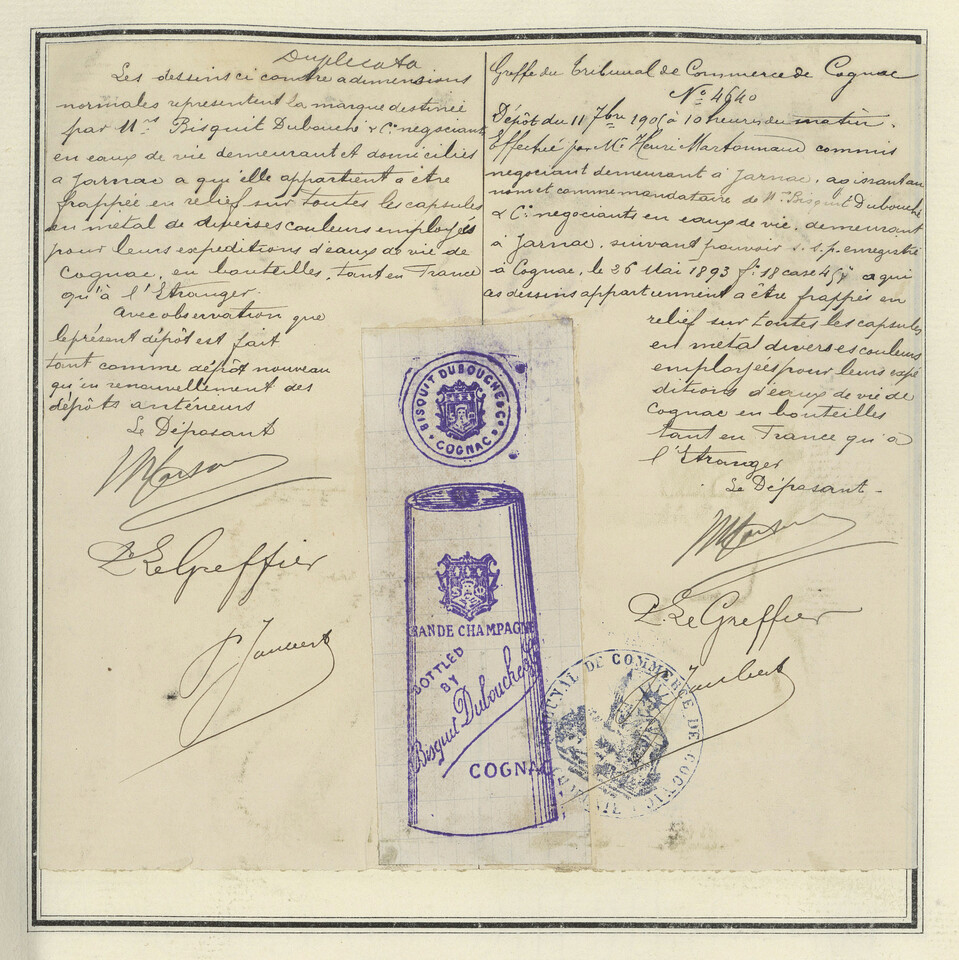 Duplicata
Les dessins ci contre a dimensions
normales representent la marque destinée
par Mrs Bisquit Dubouché & Cie négociants
en eaux de vie demeurant et domiciliés
a Jarnac a qu'elle appartient a être
frappée en relief sur toutes les capsules
en métal de diverses couleurs employés
pour leurs expeditions d'eaux de vie de
Cognac, en bouteilles, tant en France
qu'à l'Etranger.
Avec observation que
le présent dépôt est fait
tant comme dépôt nouveau
qu'en renouvellement des
dépôts antérieurs
Le Déposant
P. Le Greffier
Greffe du Tribunal de Commerce de Cognac
No 4640
Dépôt du 11 7bre 190 à 10 heures du matin.
Effectué par Mr Henri commis
negociant demeurant à Jarnac, agissant au
nom et comme mandataire de Mrs Bisquit Dubouché
& Cie negociants en eaux de vie, demeurant
à Jarnac, suivant pouvoir s.s.p. enregistré
à Cognac, le 26 Mai 1893 fo 18 case a qui
ces dessins appartiennent a être frappés en
relief sur toutes les capsules
en métal diverses couleurs
employées pour leurs expé
ditions d'eaux de vie de
Cognac en bouteilles
tant en France qu'à
l'Etranger
Le Déposant
P. Le Greffier
BISQUIT DUBOUCHÉ & Co
COGNAC
GRANDE CHAMPAGNE
BOTTLED
BY
Bisquit Dubouché & Co
COGNAC
TRIBUNAL DE COMMERCE DE COGNAC